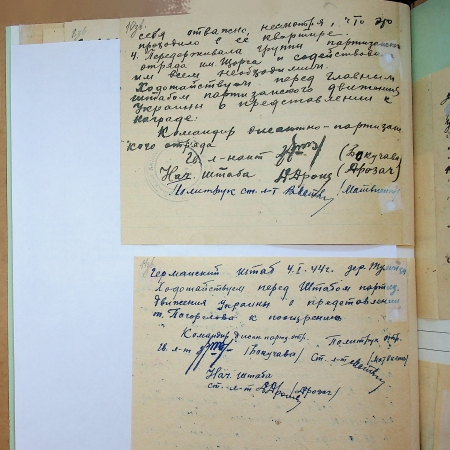 себя отважно, несмотря, что это
проходило в её квартире.
4. Передерживала группы партизанск
отряда им Щорса и содействова
им всем необходимым.
Ходотайствуем перед Главным
штабом партизанского движения
Украины о представлении к
награде:
Командир десантно-партизан
кого отряда
Гв. л-нант (Бокучава)
Нач. штаба (Дрозач)
Политрук ст. л-т
Германский штаб 4.I.44г. дер.
Ходотайствуем перед Штабом партиз.
движения Украины о представлении
т. Погорелова к поощрению
Командир десан парт. отр. Политрук отр.
Гв. л-т /Бокучава/ Ст. л-т
Нач. штаба
ст. л-т /Дрозач/